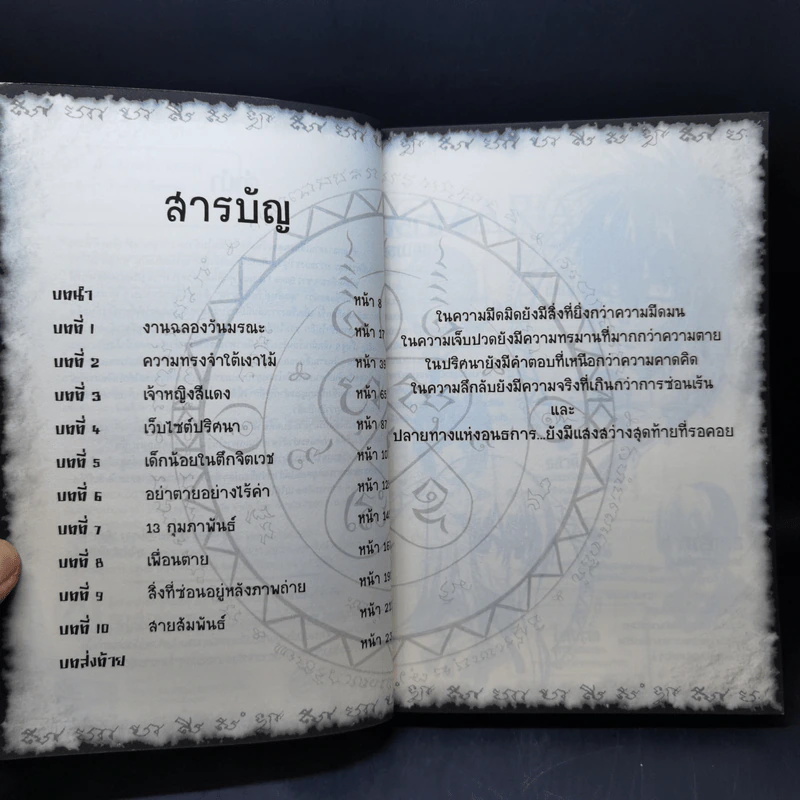 สารบัญ
บทนำ หน้า 8
บทที่ 1 งานฉลองวันมรณะ หน้า 17
บทที่ 2 ความทรงจำใต้เงาไม้ หน้า 39
บทที่ 3 เจ้าหญิงสีแดง หน้า 63
บทที่ 4 เว็บไซต์ปริศนา หน้า 87
บทที่ 5 เด็กน้อยในตึกจิตเวช หน้า
บทที่ 6 อย่าตายอย่างไร้ค่า หน้า
บทที่ 7 13 กุมภาพันธ์ หน้า
บทที่ 8 เพื่อนตาย หน้า
บทที่ 9 สิ่งที่ซ่อนอยู่หลังภาพถ่าย หน้า
บทที่ 10 สายสัมพันธ์ หน้า
บทส่งท้าย หน้า
ในความมืดมิดยังมีสิ่งที่ยิ่งกว่าความมืดมน
ในความเจ็บปวดยังมีความทรมานที่มากกว่าความตาย
ในปริศนายังมีคำตอบที่เหนือกว่าความคาดคิด
ในความลึกลับยังมีความจริงที่เกินกว่าการซ่อนเร้น
และ
ปลายทางแห่งอนธการ...ยังมีแสงสว่างสุดท้ายที่รอคอย